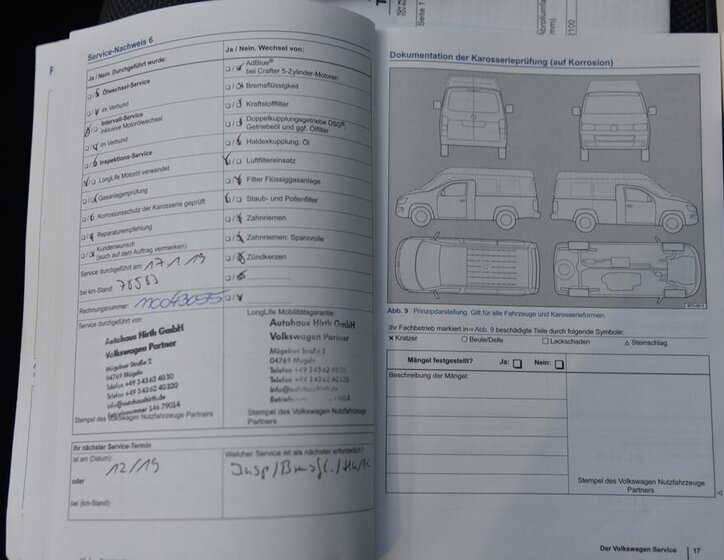 Seite 1
Service-Nachweis 6
Ja / Nein. Durchgeführt wurde:
Ölwechsel-Service
im Verbund
Intervall-Service
inklusive Motorölwechsel
im Verbund
Inspektions-Service
LongLife Motoröl verwendet
Gasanlagenprüfung
Korrosionsschutz der Karosserie geprüft
Reparaturempfehlung
Kundenwunsch
(auch auf dem Auftrag vermerken)
Service durchgeführt am: 17.1.19
bei km-Stand: 78583
Rechnungsnummer:
Service durchgeführt von:
Autohaus Hirth GmbH
Volkswagen Partner
Mügelner Straße 2
04769 Mügeln
Telefon +49 343 62 40 30
Telefax +49 343 62 40 320
info@autohaushirth.de
Betriebsnummer 146 79014
Stempel des Volkswagen Nutzfahrzeuge Partners
Ja / Nein. Wechsel von:
AdBlue®
bei Crafter 5-Zylinder-Motoren
Bremsflüssigkeit
Kraftstofffilter
Doppelkupplungsgetriebe DSG®
Getriebeöl und ggf. Ölfilter
Haldexkupplung: Öl
Luftfiltereinsatz
Filter Flüssiggasanlage
Staub- und Pollenfilter
Zahnriemen
Zahnriemen: Spannrolle
Zündkerzen
LongLife Mobilitätsgarantie:
Autohaus Hirth GmbH
Volkswagen Partner
Mügelner Straße 2
04769 Mügeln
Stempel des Volkswagen Nutzfahrzeuge
Partners
Ihr nächster Service-Termin
ist am (Datum):
12/19
oder
bei (km-Stand):
Welcher Service ist als nächster erforderlich?
Dokumentation der Karosserieprüfung (auf Korrosion)
Abb. 9 Prinzipdarstellung. Gilt für alle Fahrzeuge und Karosserieformen.
Ihr Fachbetrieb markiert in ⇒ Abb. 9 beschädigte Teile durch folgende Symbole:
× Kratzer ○ Beule/Delle □ Lackschaden △ Steinschlag
Mängel festgestellt? Ja: Nein:
Beschreibung der Mängel:
Stempel des Volkswagen Nutzfahrzeuge
Partners
Der Volkswagen Service 17